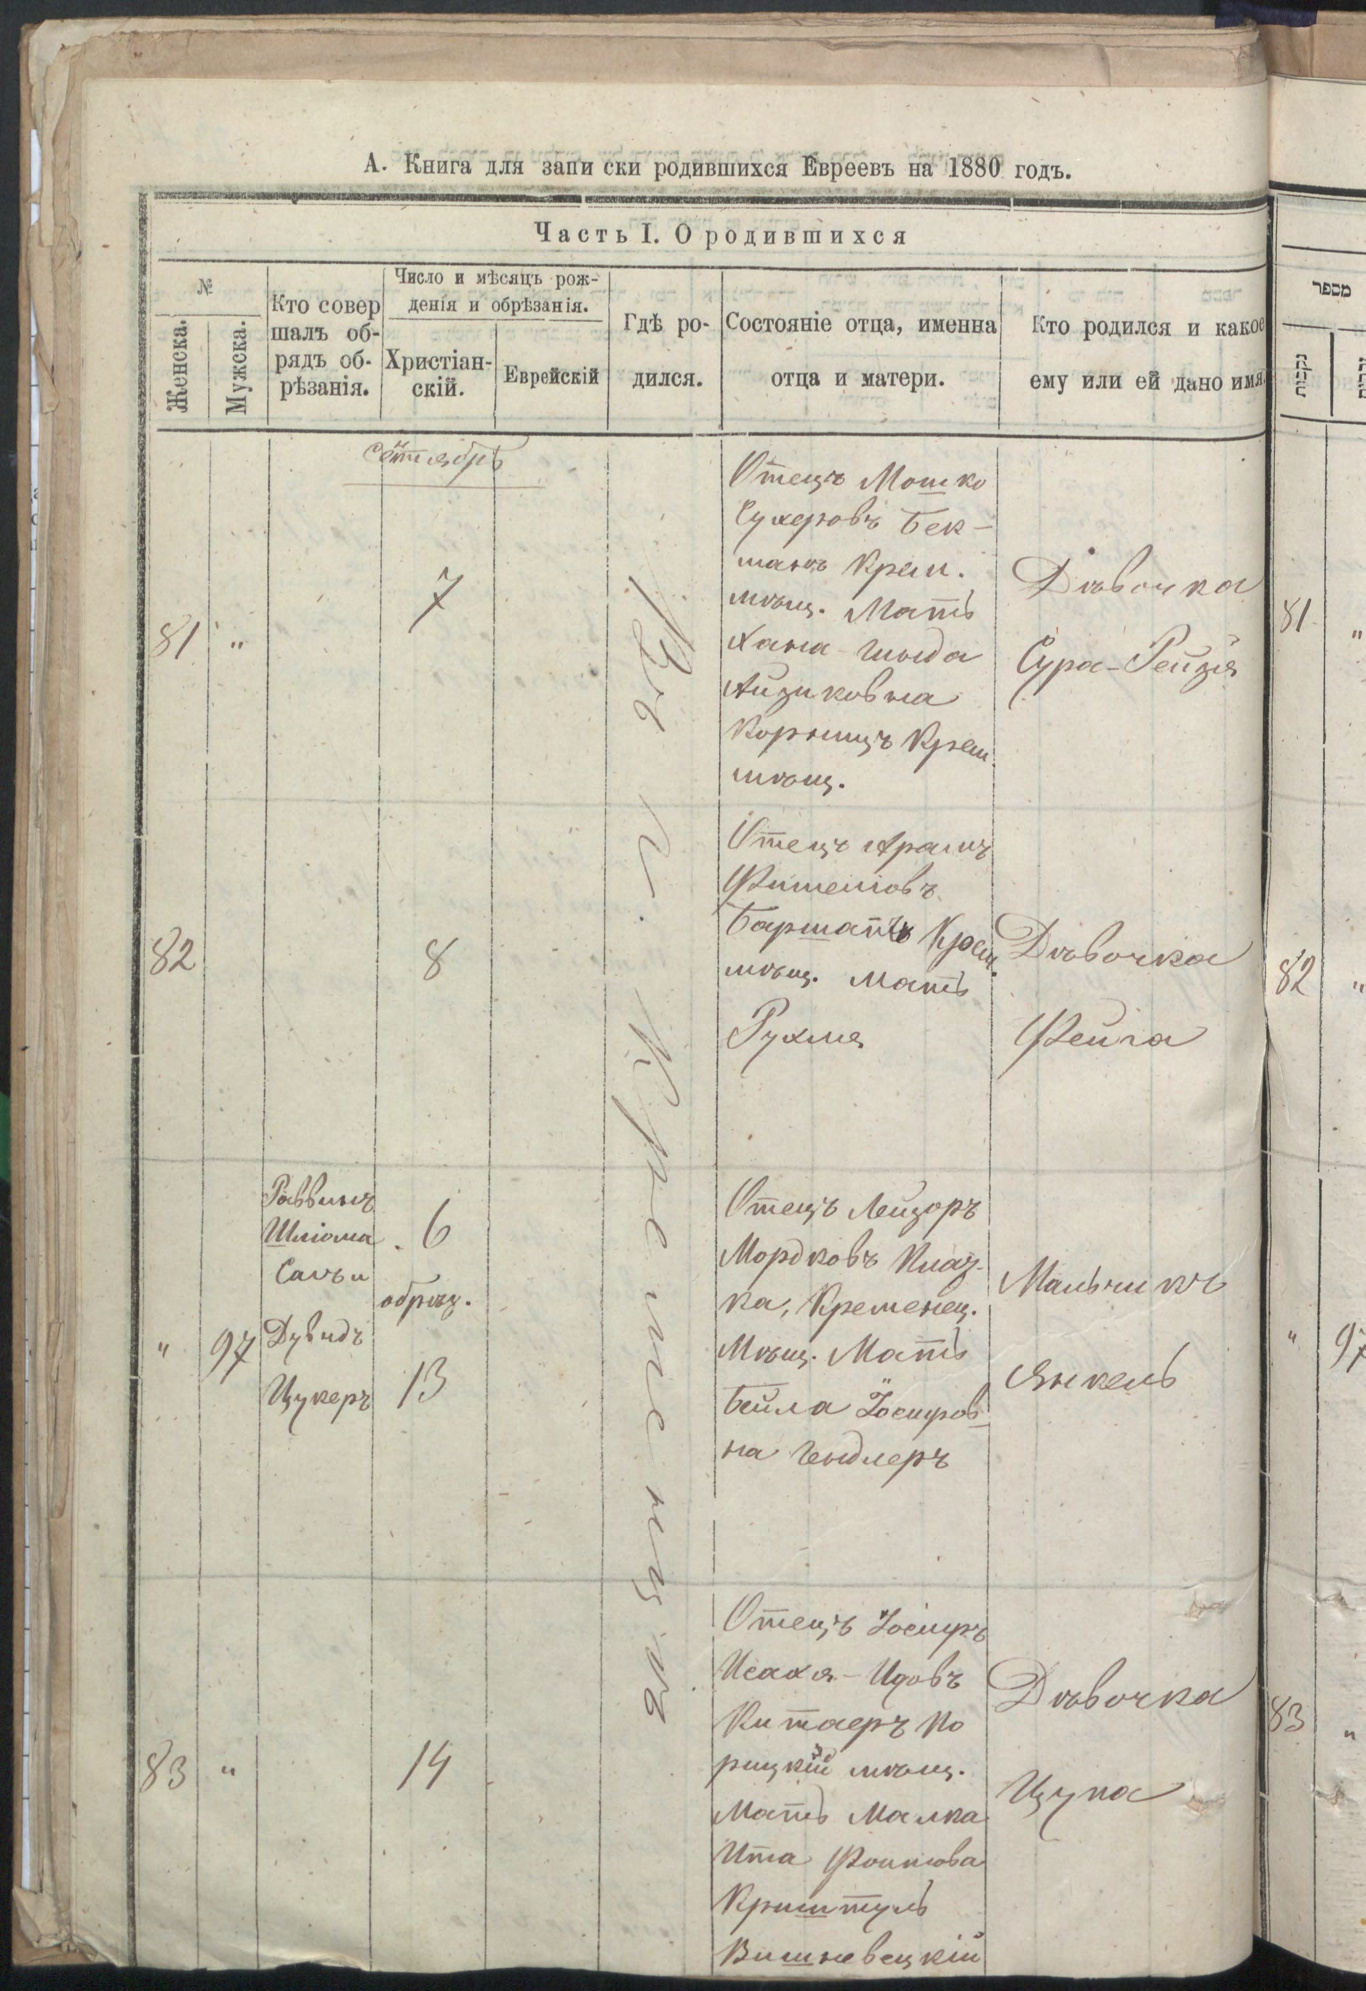 А. Книга для запи ски родившихся Евреевъ на 1880 годъ.
Часть I. О родившихся
№
Женска.
Мужска.
Кто совер
шалъ об-
рядъ об-
рѣзанія.
Число и мѣсяцъ рож-
денія и обрѣзанія.
Христіан-
скій.
Еврейскій
Гдѣ ро-
дился.
Состояніе отца, именна
отца и матери.
Кто родился и какое
ему или ей дано имя.
מספר
נקבות
Въ г. Кременцѣ
81
"
7
Отецъ Мошко
Сухеровъ Бек-
манъ Крем.
мѣщ. Мать
Хана-Гинда
Айзиковна
Корницъ Крем.
мѣщ.
Дѣвочка
Сура-Рейзя
81
"
82
8
Отецъ
Фишелiовъ
Крем.
мѣщ. Мать
Рухля
Дѣвочка
Фейга
82
"
"
97
Раввинъ
Шліома
Дувидъ
Цукеръ
6
обрѣз.
13
Отецъ Лейзоръ
Мордковъ
ка, Кременец.
Мѣщ. Мать
Бейла Іосифов
на Гендлеръ
Мальчикъ
Янкель
"
97
83
"
14
Отецъ Іосифъ
Исахя-Идовъ
Китаеръ Ко
рицкій мѣщ.
Мать Малка
Ита
Криштуль
Вишневецкій
Дѣвочка
Цупа
83
"